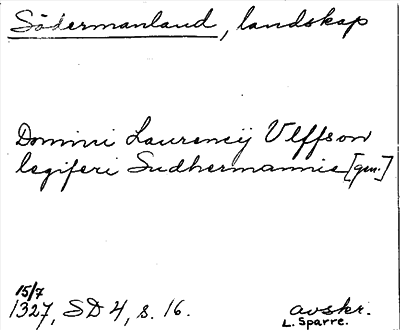 Södermanland, landskap
Domini Laurencij Ulffson
legiferi Sudhermannie [gen.]
15/7
1327, SD 4, s. 16.
avskr.
L. Sparre.